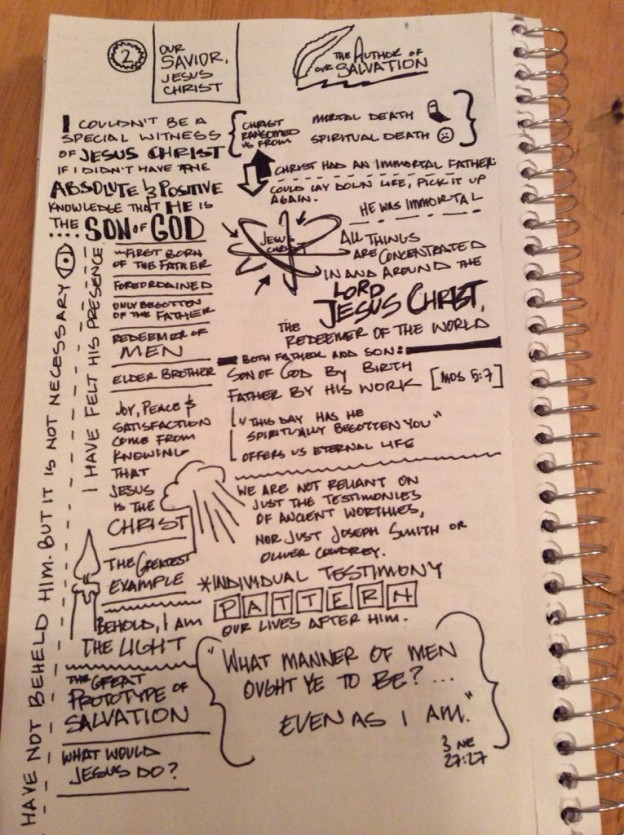 2
OUR
SAVIOR,
JESUS
CHRIST
THE AUTHOR OF
OUR SALVATION
I COULDN'T BE A
SPECIAL WITNESS
OF JESUS CHRIST
IF I DIDN'T HAVE THE
ABSOLUTE & POSITIVE
KNOWLEDGE THAT HE IS
THE SON OF GOD
CHRIST
RANSOMED
US FROM
MORTAL DEATH
SPIRITUAL DEATH
CHRIST HAD AN IMMORTAL FATHER
COULD LAY DOWN LIFE, PICK IT UP
AGAIN.
HE WAS IMMORTAL
JESUS
CHRIST
ALL THINGS
ARE CONCENTRATED
IN AND AROUND THE
LORD
JESUS CHRIST,
THE
REDEEMER OF THE WORLD
BOTH FATHER AND SON:
SON OF GOD BY BIRTH
FATHER BY HIS WORK [MOS 5:7]
"THIS DAY HAS HE
SPIRITUALLY BEGOTTEN YOU"
OFFERS US ETERNAL LIFE
WE ARE NOT RELIANT ON
JUST THE TESTIMONIES
OF ANCIENT WORTHIES,
NOR JUST JOSEPH SMITH OR
OLIVER COWDREY.
*INDIVIDUAL TESTIMONY
PATTERN
OUR LIVES AFTER HIM.
"WHAT MANNER OF MEN
OUGHT YE TO BE?...
EVEN AS I AM."
3 NE
27:27
I HAVE NOT BEHELD HIM. BUT IT IS NOT NECESSARY
I HAVE FELT HIS PRESENCE
FIRST BORN
OF THE FATHER
FOREORDAINED
ONLY BEGOTTEN
OF THE FATHER
REDEEMER OF
MEN
ELDER BROTHER
JOY, PEACE &
SATISFACTION
COME FROM
KNOWING
THAT
JESUS
IS THE
CHRIST
THE GREATEST
EXAMPLE
BEHOLD, I AM
THE LIGHT
THE GREAT
PROTOTYPE OF
SALVATION
WHAT WOULD
JESUS DO?